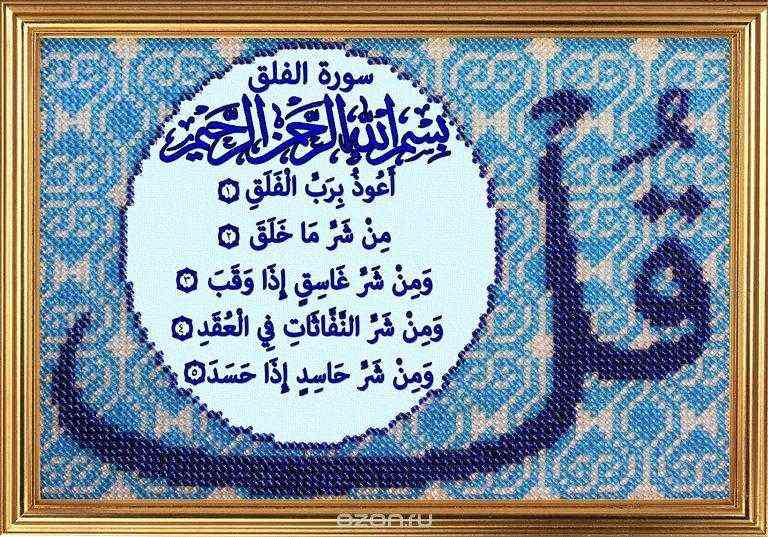 قُلْ
سورة الفلق
بِسْمِ اللَّهِ الرَّحْمَٰنِ الرَّحِيمِ
أَعُوذُ بِرَبِّ الْفَلَقِ ١
مِنْ شَرِّ مَا خَلَقَ ٢
وَمِنْ شَرِّ غَاسِقٍ إِذَا وَقَبَ ٣
وَمِنْ شَرِّ النَّفَّاثَاتِ فِي الْعُقَدِ ٤
وَمِنْ شَرِّ حَاسِدٍ إِذَا حَسَدَ ٥
ozon.ru